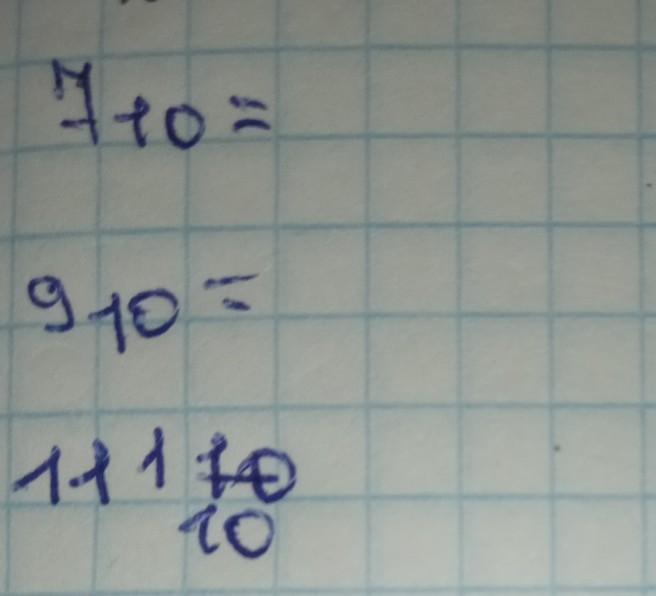 7₁₀ =
9₁₀ =
111₁₀